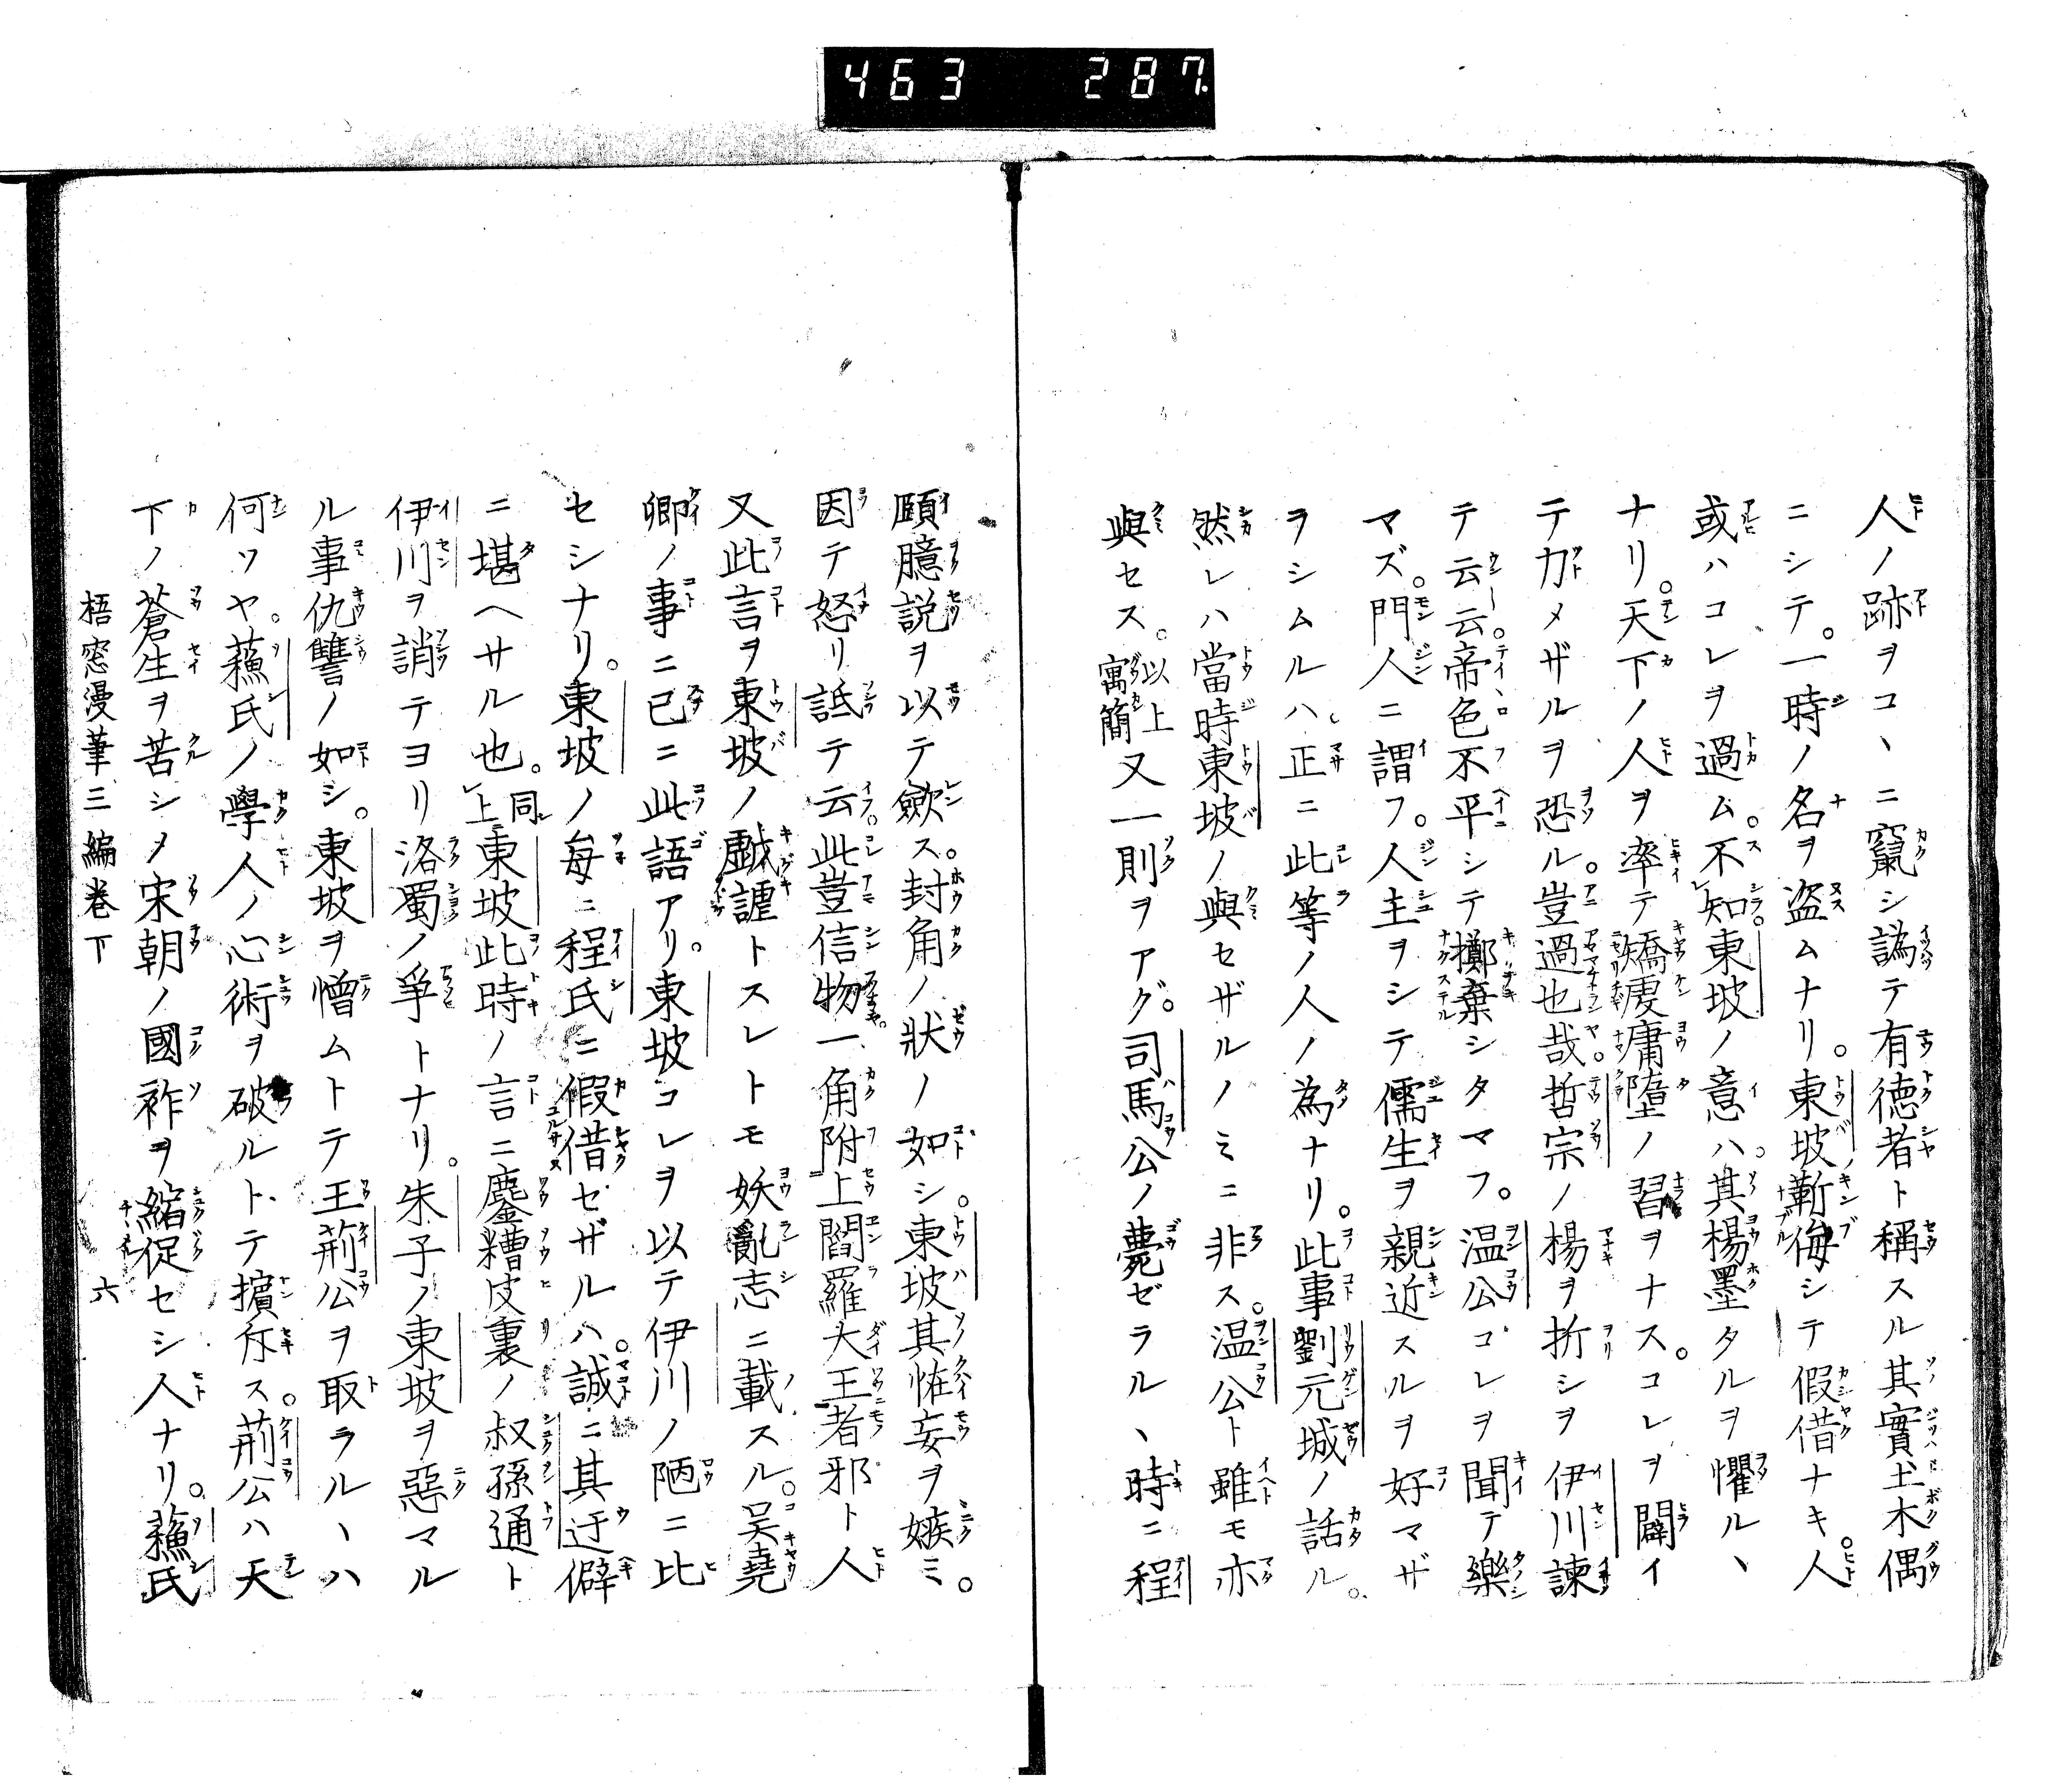 463 287
人ノ跡ヲコヽニ竄シ譌テ有德者ト稱スル其實土木偶
ニシテ。一時ノ名ヲ盗ムナリ。東坡斬侮シテ假借ナキ。人
或ハコレヲ過ム。不知東坡ノ意ハ。其楊墨タルヲ懼ルヽ
ナリ。天下ノ人ヲ率テ矯虔庸墮ノ習ヲナス。コレヲ闢イ
テ力メザルヲ恐ル。豈過也哉哲宗ノ楊ヲ折シヲ伊川諫
テ云云。帝色不平シテ擲棄シタマフ。温公コレヲ聞テ樂
マズ。門人ニ謂フ。人主ヲシテ儒生ヲ親近スルヲ好マザ
ラシムルハ正ニ此等ノ人ノ為ナリ。此事劉元城ノ話ル。
然レハ當時東坡ノ與セザルノミニ非ス。温公ト雖モ亦
與セス。以上寓簡又一則ヲアグ。司馬公ノ薨ゼラルヽ時ニ程
頤臆説ヲ以テ歛ス。封角ノ狀ノ如シ。東坡其恠妄ヲ嫉ミ。
因テ怒リ詆テ云此豈信物一角附上閻羅大王者邪ト人
又此言ヲ東坡ノ戯謔トスレトモ妖亂志ニ載スル。呉堯
卿ノ事ニ已ニ此語アリ。東坡コレヲ以テ伊川ノ陋ニ比
セシナリ。東坡ノ毎ニ程氏ニ假借セザルハ。誠ニ其迂僻
ニ堪ヘサル也。同上東坡此時ノ言ニ鏖糟皮裏ノ叔孫通ト
伊川ヲ誚テヨリ洛蜀ノ爭トナリ。朱子ノ東坡ヲ惡マル
ル事仇讐ノ如シ。東坡ヲ憎ムトテ王荊公ヲ取ラルヽハ
何ソヤ。蘓氏ノ學人ノ心術ヲ破ルトテ擯斥ス。荊公ハ天
下ノ蒼生ヲ苦シメ宋朝ノ國祚ヲ縮促セシ人ナリ。蘓氏
梧窓漫筆三編巻下 六